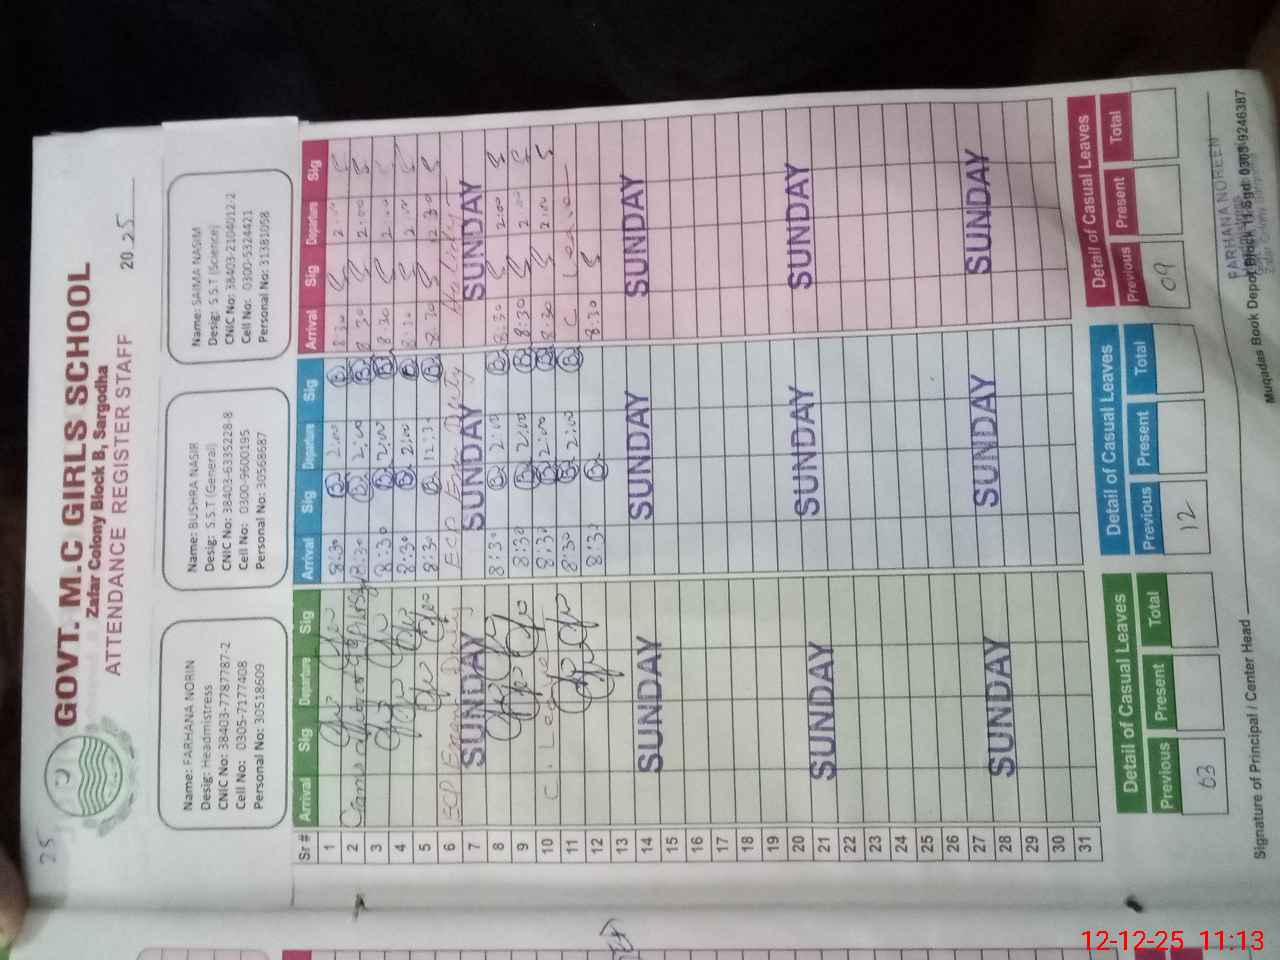 25
GOVT. M.C GIRLS SCHOOL
Zafar Colony Block B, Sargodha
ATTENDANCE REGISTER STAFF
20 25
Name: FARHANA NORIN
Desig: Headmistress
CNIC No: 38403-7787787-2
Cell No: 0305-7177408
Personal No: 30518609
Name: BUSHRA NASIR
Desig: S.S.T (General)
CNIC No: 38403-6335228-8
Cell No: 0300-9600195
Personal No: 30568687
Name: SAIMA NASIM
Desig: S.S.T (Science)
CNIC No: 38403-2104012-2
Cell No: 0300-5324421
Personal No: 31381058
Sr # Arrival Sig Departure Sig Arrival Sig Departure Sig Arrival Sig Departure Sig
1 8:30 2:00 8:30 2:00
2 8:30 2:00 8:30 2:00
3 8:30 2:00 8:30 2:00
4 8:30 2:00 8:30 2:00
5 8:30 12:30 8:30 12:30
6 ECP Exam Duty ECP Exam Duty
7 SUNDAY SUNDAY SUNDAY
8 8:30 2:00 8:30 2:00
9 8:30 2:00 8:30 2:00
10 C. Leave 8:30 2:00 8:30 2:00
11 8:30 2:00 C Leave
12 8:30 8:30
13
14 SUNDAY SUNDAY SUNDAY
15
16
17
18
19
20
21 SUNDAY SUNDAY SUNDAY
22
23
24
25
26
27
28 SUNDAY SUNDAY SUNDAY
29
30
31
Detail of Casual Leaves Detail of Casual Leaves Detail of Casual Leaves
Previous Present Total Previous Present Total Previous Present Total
03 12 09
Signature of Principal / Center Head
FARHANA NOREEN
Muqudas Book Depot Block 11 Sgd: 0303-9246387
12-12-25 11:13